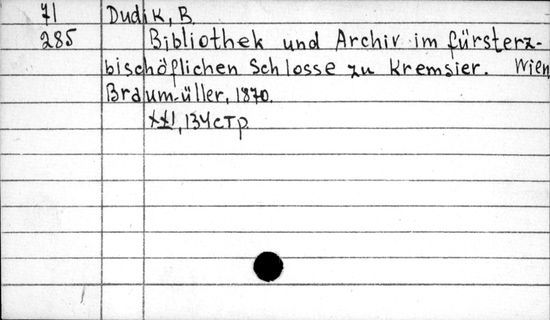 71 Dudik, B.
285 Bibliothek und Archiv im fürsterz-
bischöflichen Schlosse zu Kremsier. Wien
Braum-üller, 1870.
XXI, 134 стр.